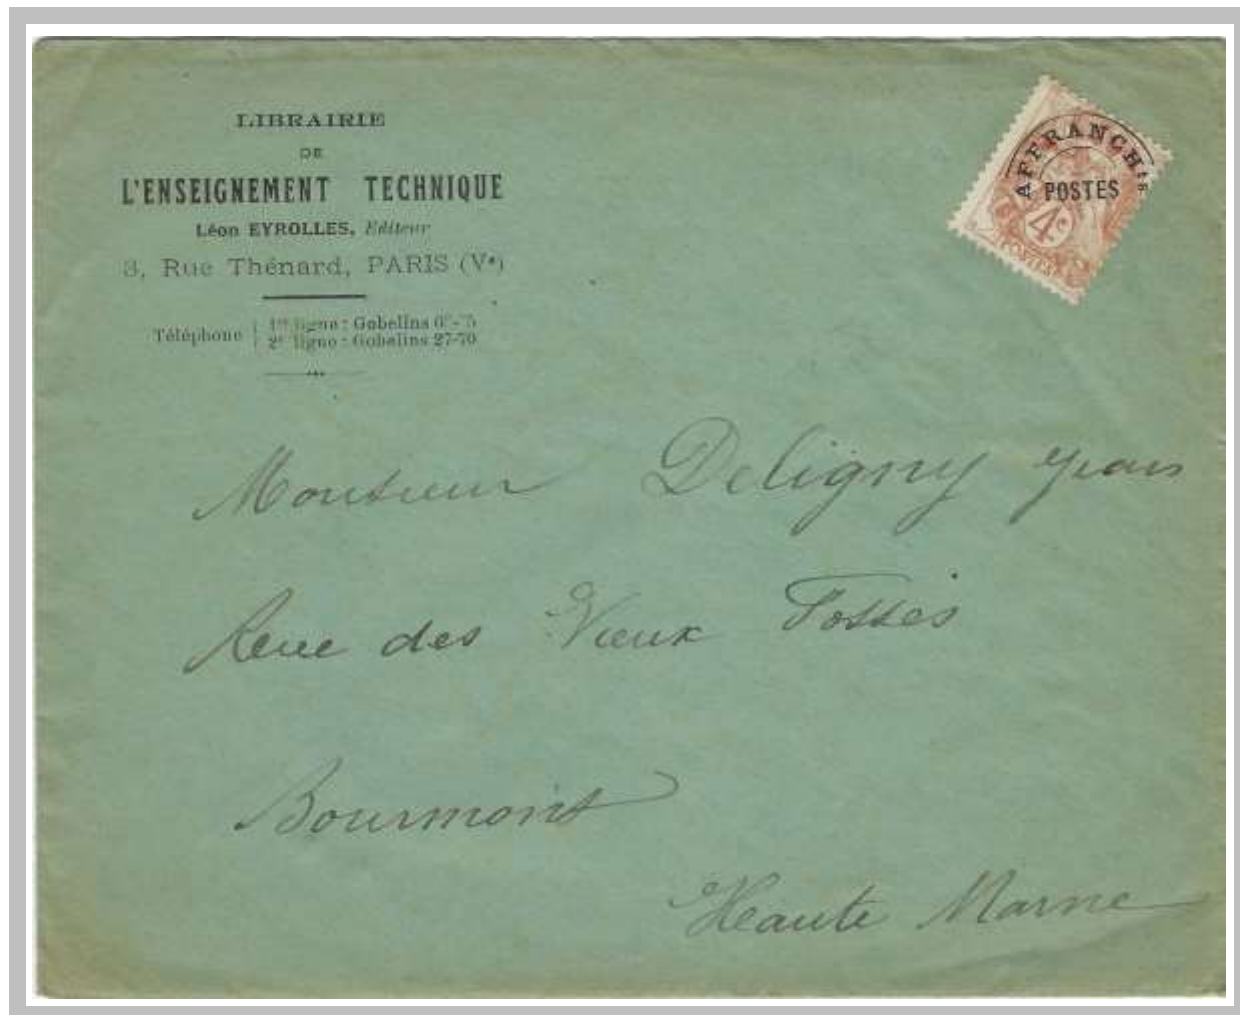 LIBRAIRIE
DE
L'ENSEIGNEMENT TECHNIQUE
Léon EYROLLES, Editeur
3, Rue Thénard, PARIS (Vᵉ)
Téléphone
1ʳᵉ ligne : Gobelins
2ᵉ ligne : Gobelins 27-70
AFFRANCHᵗˢ
POSTES
4ᶜ
POSTES
Monsieur Deligny
Rue des Vieux Fossés
Bourmont
Haute Marne